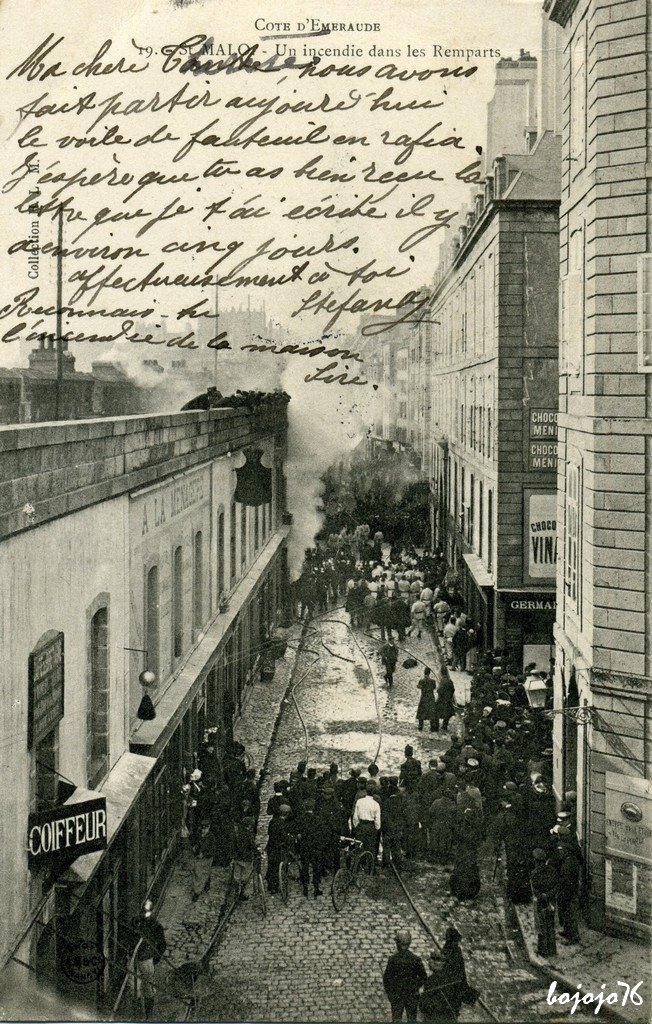 COTE D'EMERAUDE
19. - St MALO. - Un incendie dans les Remparts
Ma chère nous avons
fait partir aujourd'hui
le voile de fauteuil en rafia.
J'espère que tu as bien reçu la
lettre que je t'ai écrite il y
a environ cinq jours.
affectueusement à toi
Reconnais-tu Stefany
l'incendie de la maison
Sire.
Collection
A LA MÉNAGÈRE
CHOCO
MENI
CHOCO
MENI
CHOCO
VINA
GERMAI
COIFFEUR
bojojo76